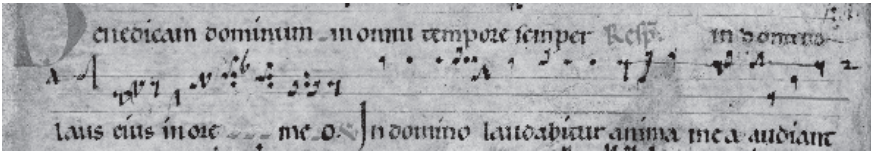 Benedicam dominum in omni tempore semper Resp. in domino
laus eius in ore meo. In domino laudabitur anima mea audiant